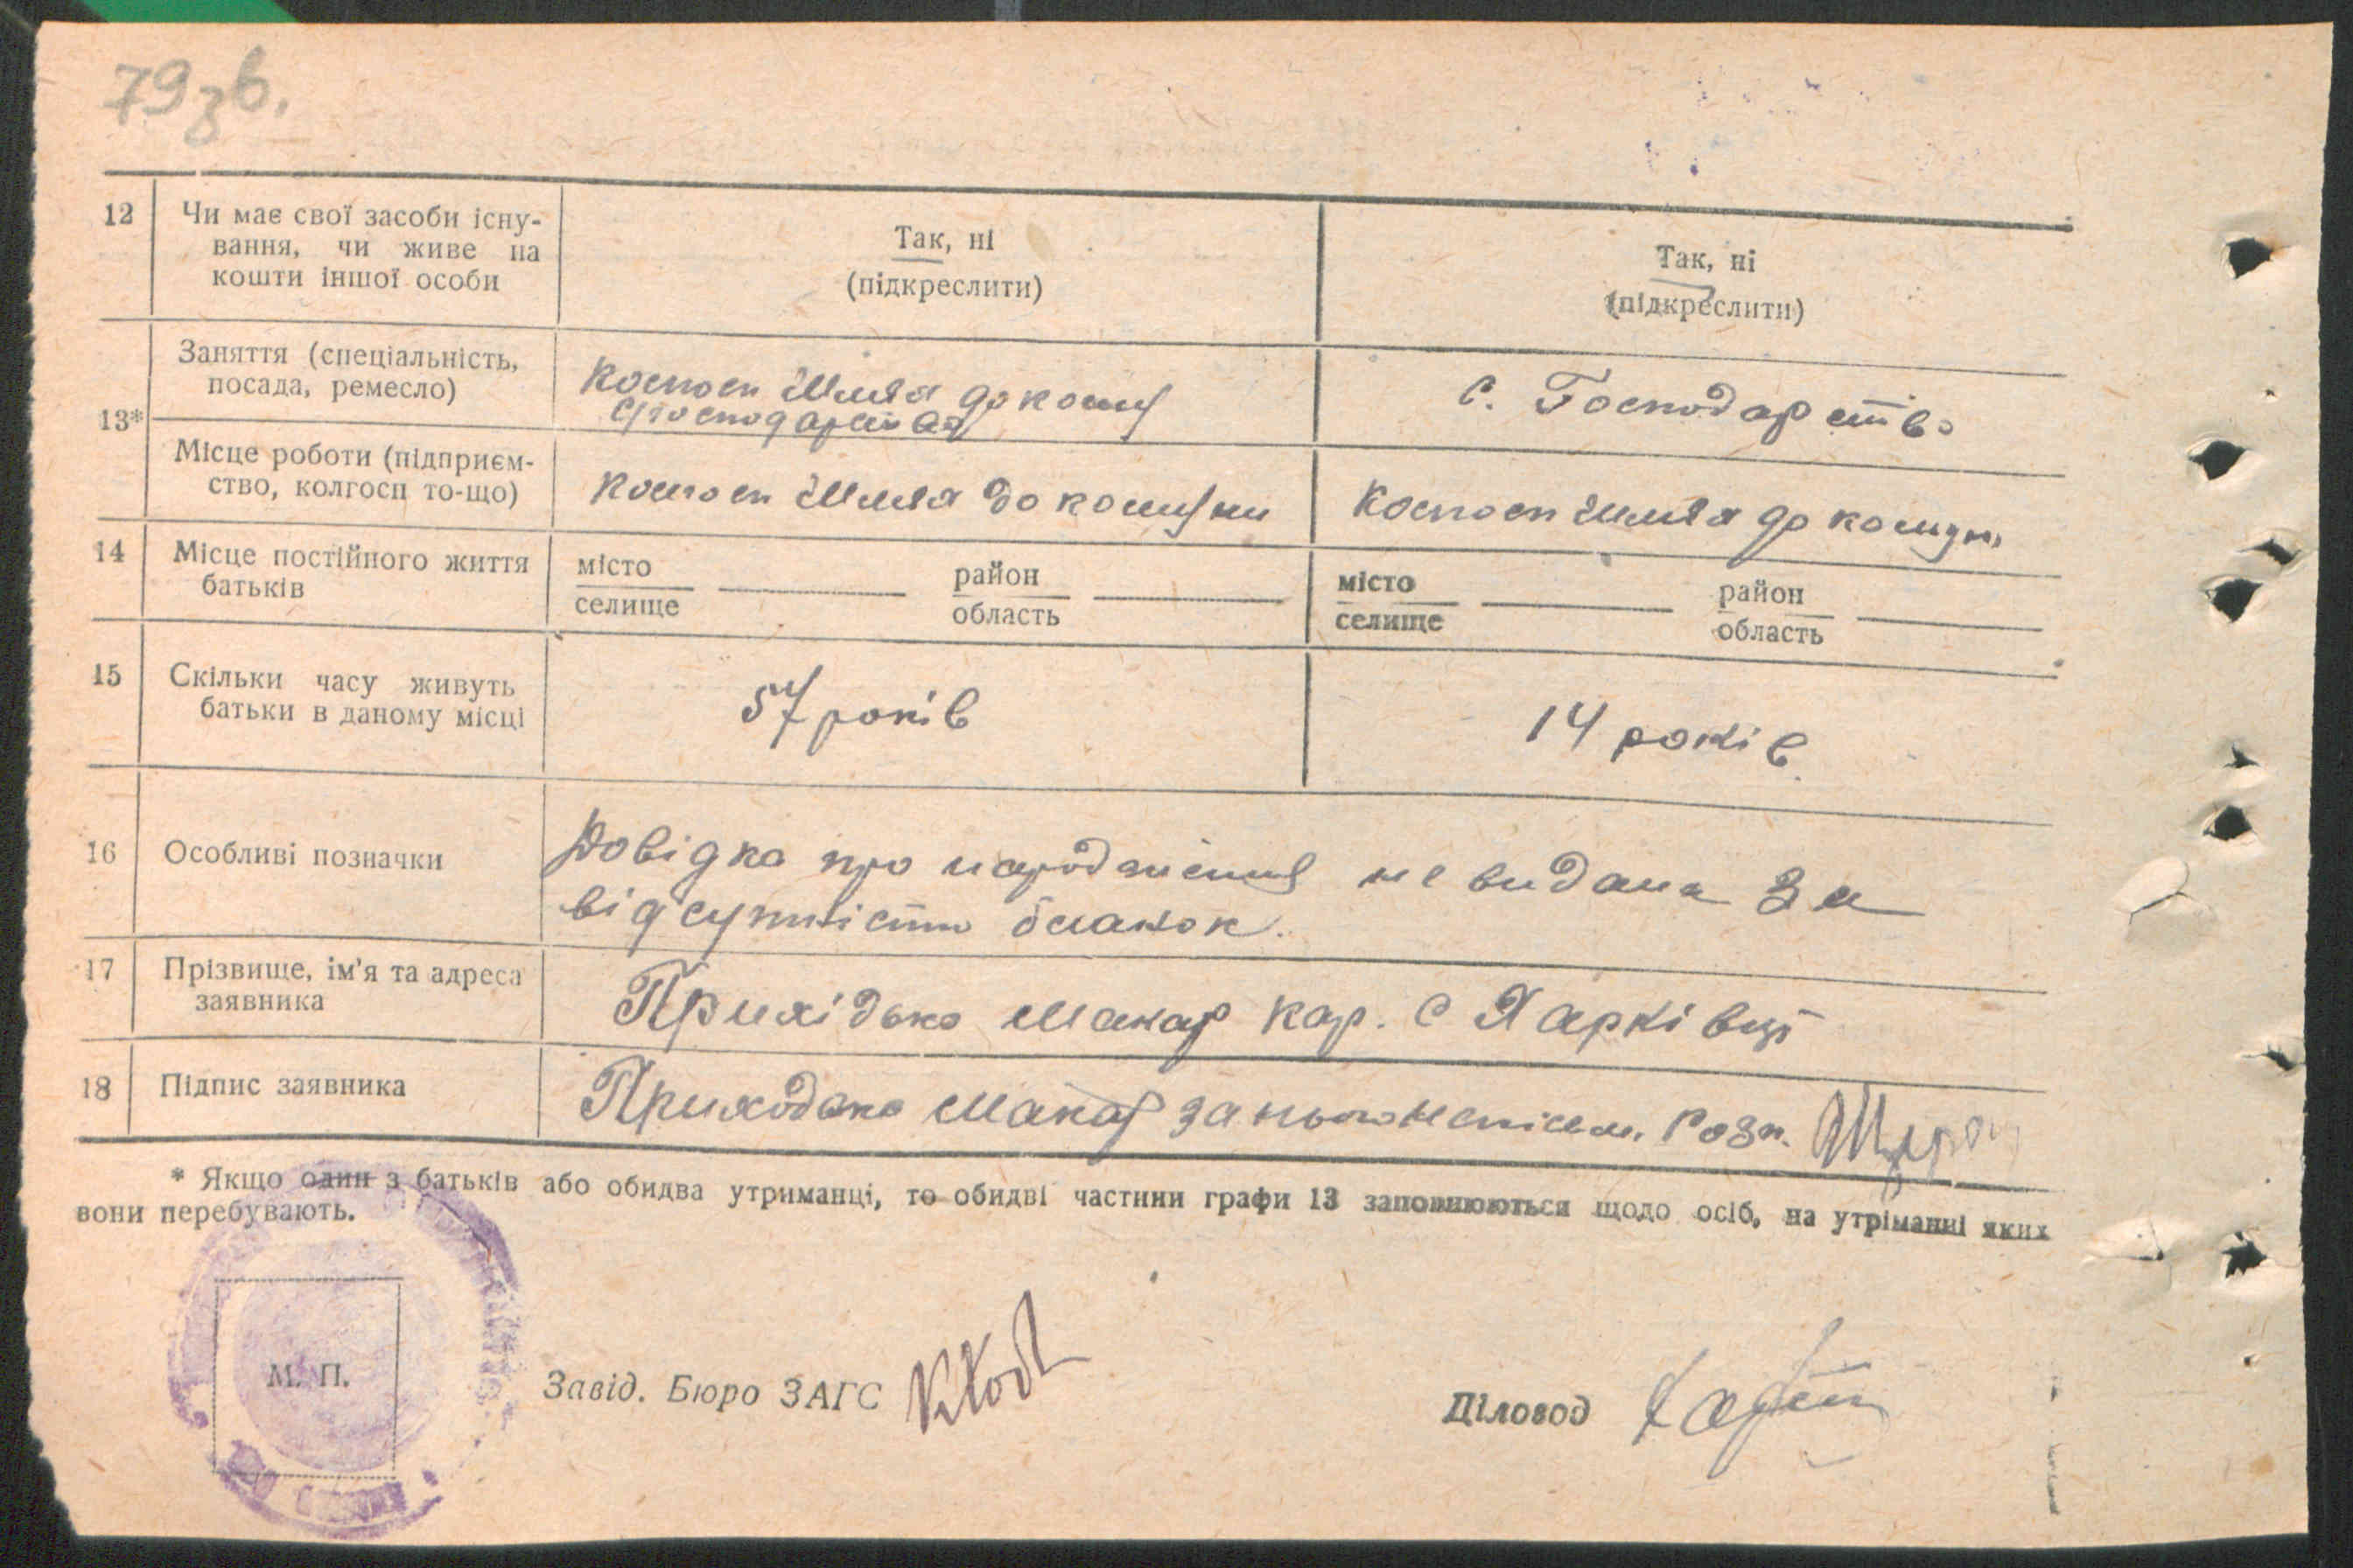 79зв.
12 Чи має свої засоби існу-
вання, чи живе на
кошти іншої особи
Так, ні
(підкреслити)
Так, ні
(підкреслити)
13*
Заняття (спеціальність,
посада, ремесло)
колгосп Шлях до комун
с/господарства
с. Господарство
Місце роботи (підприєм-
ство, колгосп то-що)
колгосп Шлях до комуни
колгосп Шлях до комуни
14 Місце постійного життя
батьків
місто район
селище область
місто район
селище область
15 Скільки часу живуть
батьки в даному місці
57 років
14 років
16 Особливі позначки
Довідка про народження не видана за
відсутністю бланок.
17 Прізвище, ім'я та адреса
заявника
Прихідько Макар Кар. с Харківці
18 Підпис заявника
Приходько Макар за нього неписьм. розп.
* Якщо один з батьків або обидва утриманці, то обидві частини графи 13 заповнюються щодо осіб, на утріманні яких
вони перебувають.
М. П.
Завід. Бюро ЗАГС
Діловод